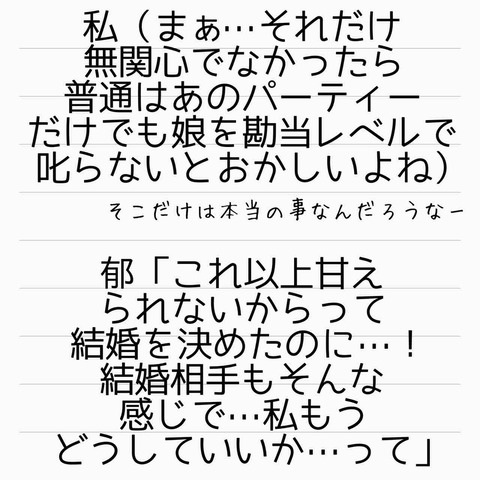 私（まぁ…それだけ
無関心でなかったら
普通はあのパーティー
だけでも娘を勘当レベルで
叱らないとおかしいよね）
そこだけは本当の事なんだろうなー
郁「これ以上甘え
られないからって
結婚を決めたのに…！
結婚相手もそんな
感じで…私もう
どうしていいか…って」